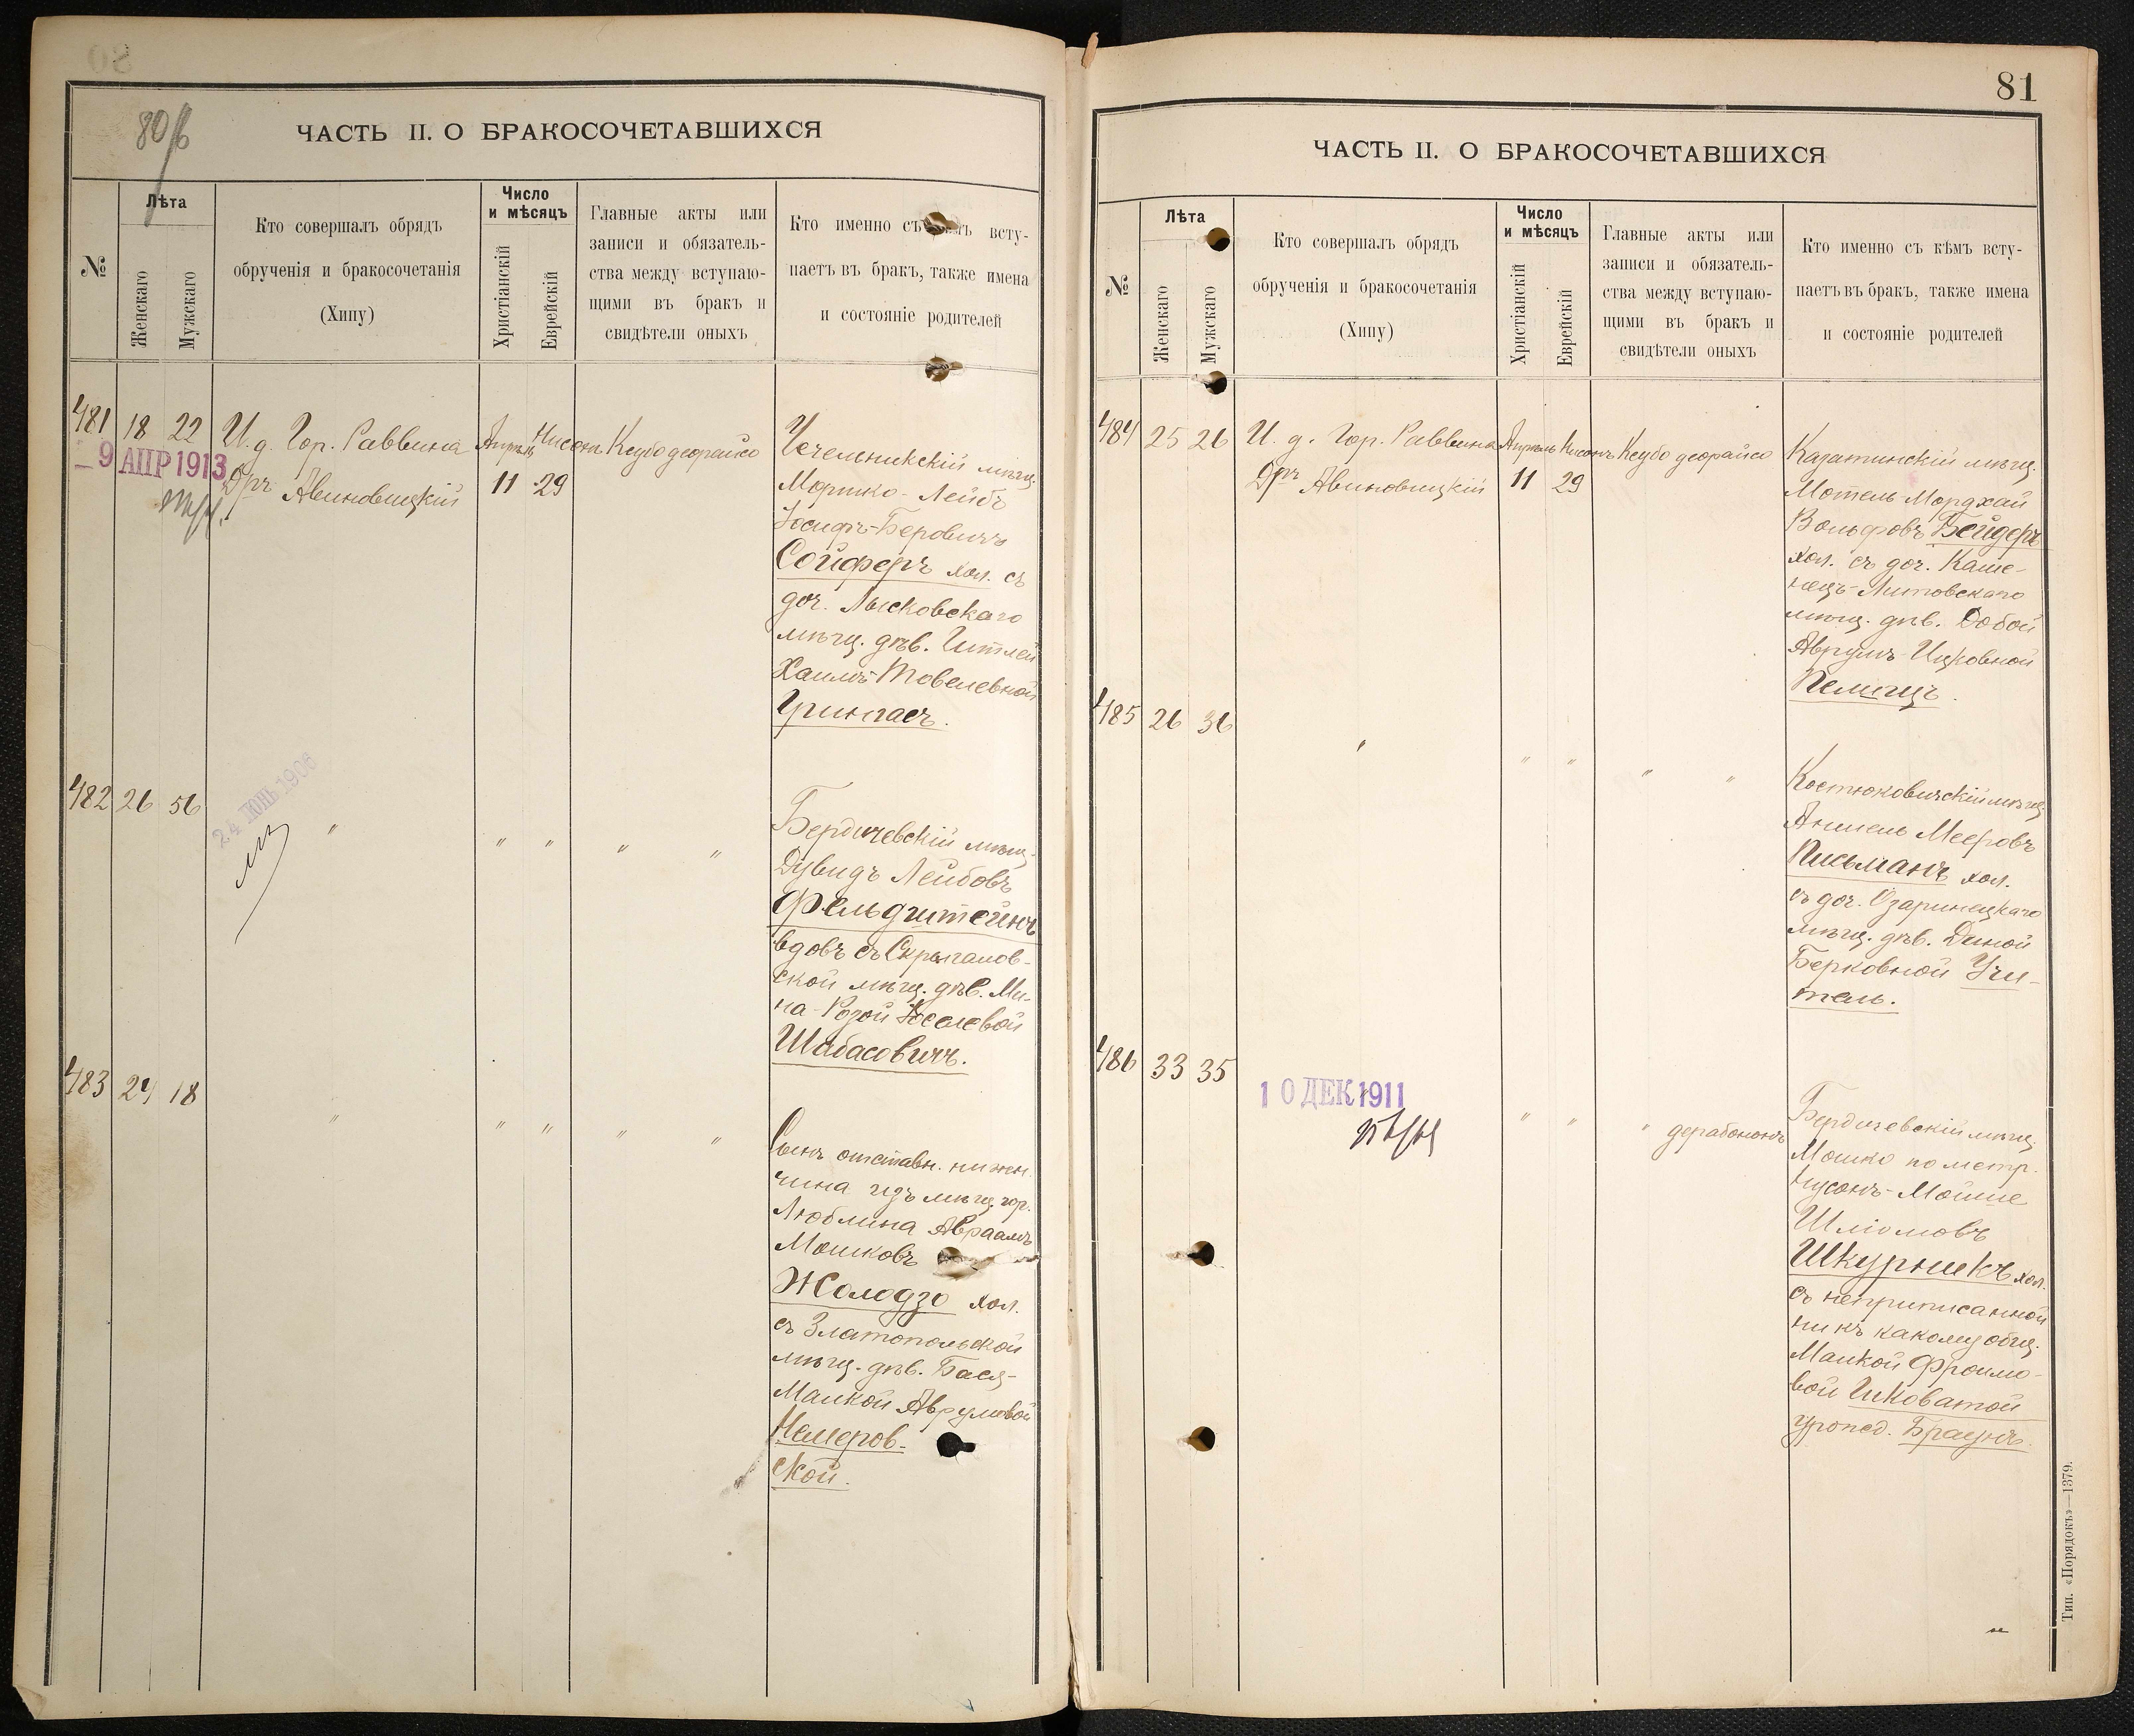 80б
ЧАСТЬ II. О БРАКОСОЧЕТАВШИХСЯ
№
Лѣта
Женскаго
Мужскаго
Кто совершалъ обрядъ
обрученія и бракосочетанія
(Хипу)
Число
и мѣсяцъ
Христіанскій
Еврейскій
Главные акты или
записи и обязатель-
ства между вступаю-
щими въ бракъ и
свидѣтели оныхъ
Кто именно съ кѣмъ всту-
паетъ въ бракъ, также имена
и состояніе родителей
481 18 22 И. д. Гор. Раввина Апрѣль Нисонъ Ксубо деорайсо
9 АПР 1913
Дръ Авиновицкій 11 29
Чечельникскій мѣщ.
Мошко-Лейбъ
Іосифъ-Беровичъ
Сойферъ хол. съ
доч. Лысковскаго
мѣщ. дѣв. Гитлей
Хаимъ-Товелевной
Грингасъ.
482 26 56 " " " " "
24 ІЮНЬ 1906
Бердичевскій мѣщ.
Дувидъ Лейбовъ
Фельдштейнъ
вдовъ съ Скрыгалов-
ской мѣщ. дѣв. Ми-
на-Розой Іоселевой
Шабасовичъ.
483 24 18 " " " " "
Сынъ отставн. нижн.
чина изъ мѣщ. гор.
Люблина Авраамъ
Мошковъ
Жолодзо хол.
съ Златопольской
мѣщ. дѣв. Бася-
Малкой Аврумовой
Немеров-
ской.
81
ЧАСТЬ II. О БРАКОСОЧЕТАВШИХСЯ
№
Лѣта
Женскаго
Мужскаго
Кто совершалъ обрядъ
обрученія и бракосочетанія
(Хипу)
Число
и мѣсяцъ
Христіанскій
Еврейскій
Главные акты или
записи и обязатель-
ства между вступаю-
щими въ бракъ и
свидѣтели оныхъ
Кто именно съ кѣмъ всту-
паетъ въ бракъ, также имена
и состояніе родителей
484 25 26 И. д. Гор. Раввина Апрѣль Нисонъ Ксубо деорайсо
Дръ Авиновицкій 11 29
Казатинскій мѣщ.
Мотель Мордхай
Вольфовъ Бейдеръ
хол. съ доч. Каме-
нецъ-Литовскаго
мѣщ. дѣв. Добой
Аврумъ-Ицковной
Пелицъ.
485 26 36 " " " " "
Костюковичскій мѣщ.
Аншель Мееровъ
Письманъ хол.
съ доч. Озаринецкаго
мѣщ. дѣв. Диной
Берковной Учи-
тель.
486 33 35 " " " дерабононъ
10 ДЕК 1911
Бердичевскій мѣщ.
Мошко по метр.
Нусонъ-Мойше
Шліомовъ
Шкурникъ хол.
съ неприписанной
ни къ какому общ.
Малкой Фроимо-
вой Гиковатой
урожд. Браунъ.
Тип. «Порядокъ»—1379.